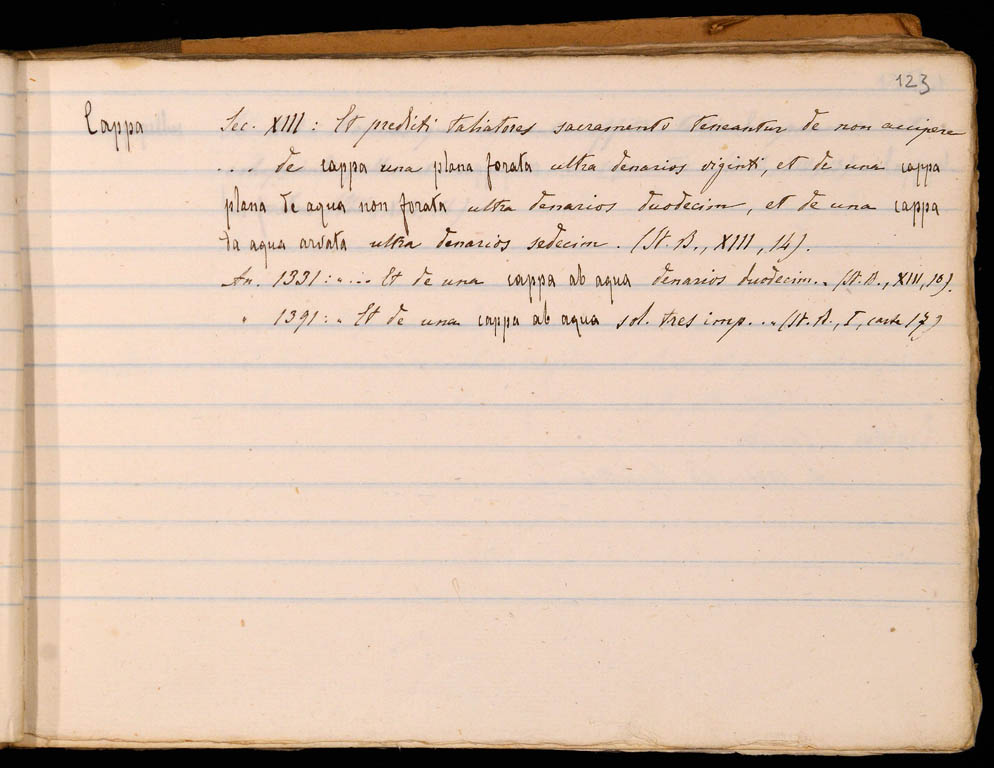 123
Cappa Sec. XIII: Et predicti taliatores sacramento teneantur de non accipere
... de cappa una plana forata ultra denarios viginti, et de una cappa
plana de aqua non forata ultra denarios duodecim, et de una cappa
da aqua arvata ultra denarios sedecim. (St. B., XIII, 14).
An. 1331: „ ... Et de una cappa ab aqua denarios duodecim. „ (St. B., XIII, 10).
" 1391: „ Et de una cappa ab aqua sol. tres imp. .. „ (St. B., I, carta 17)